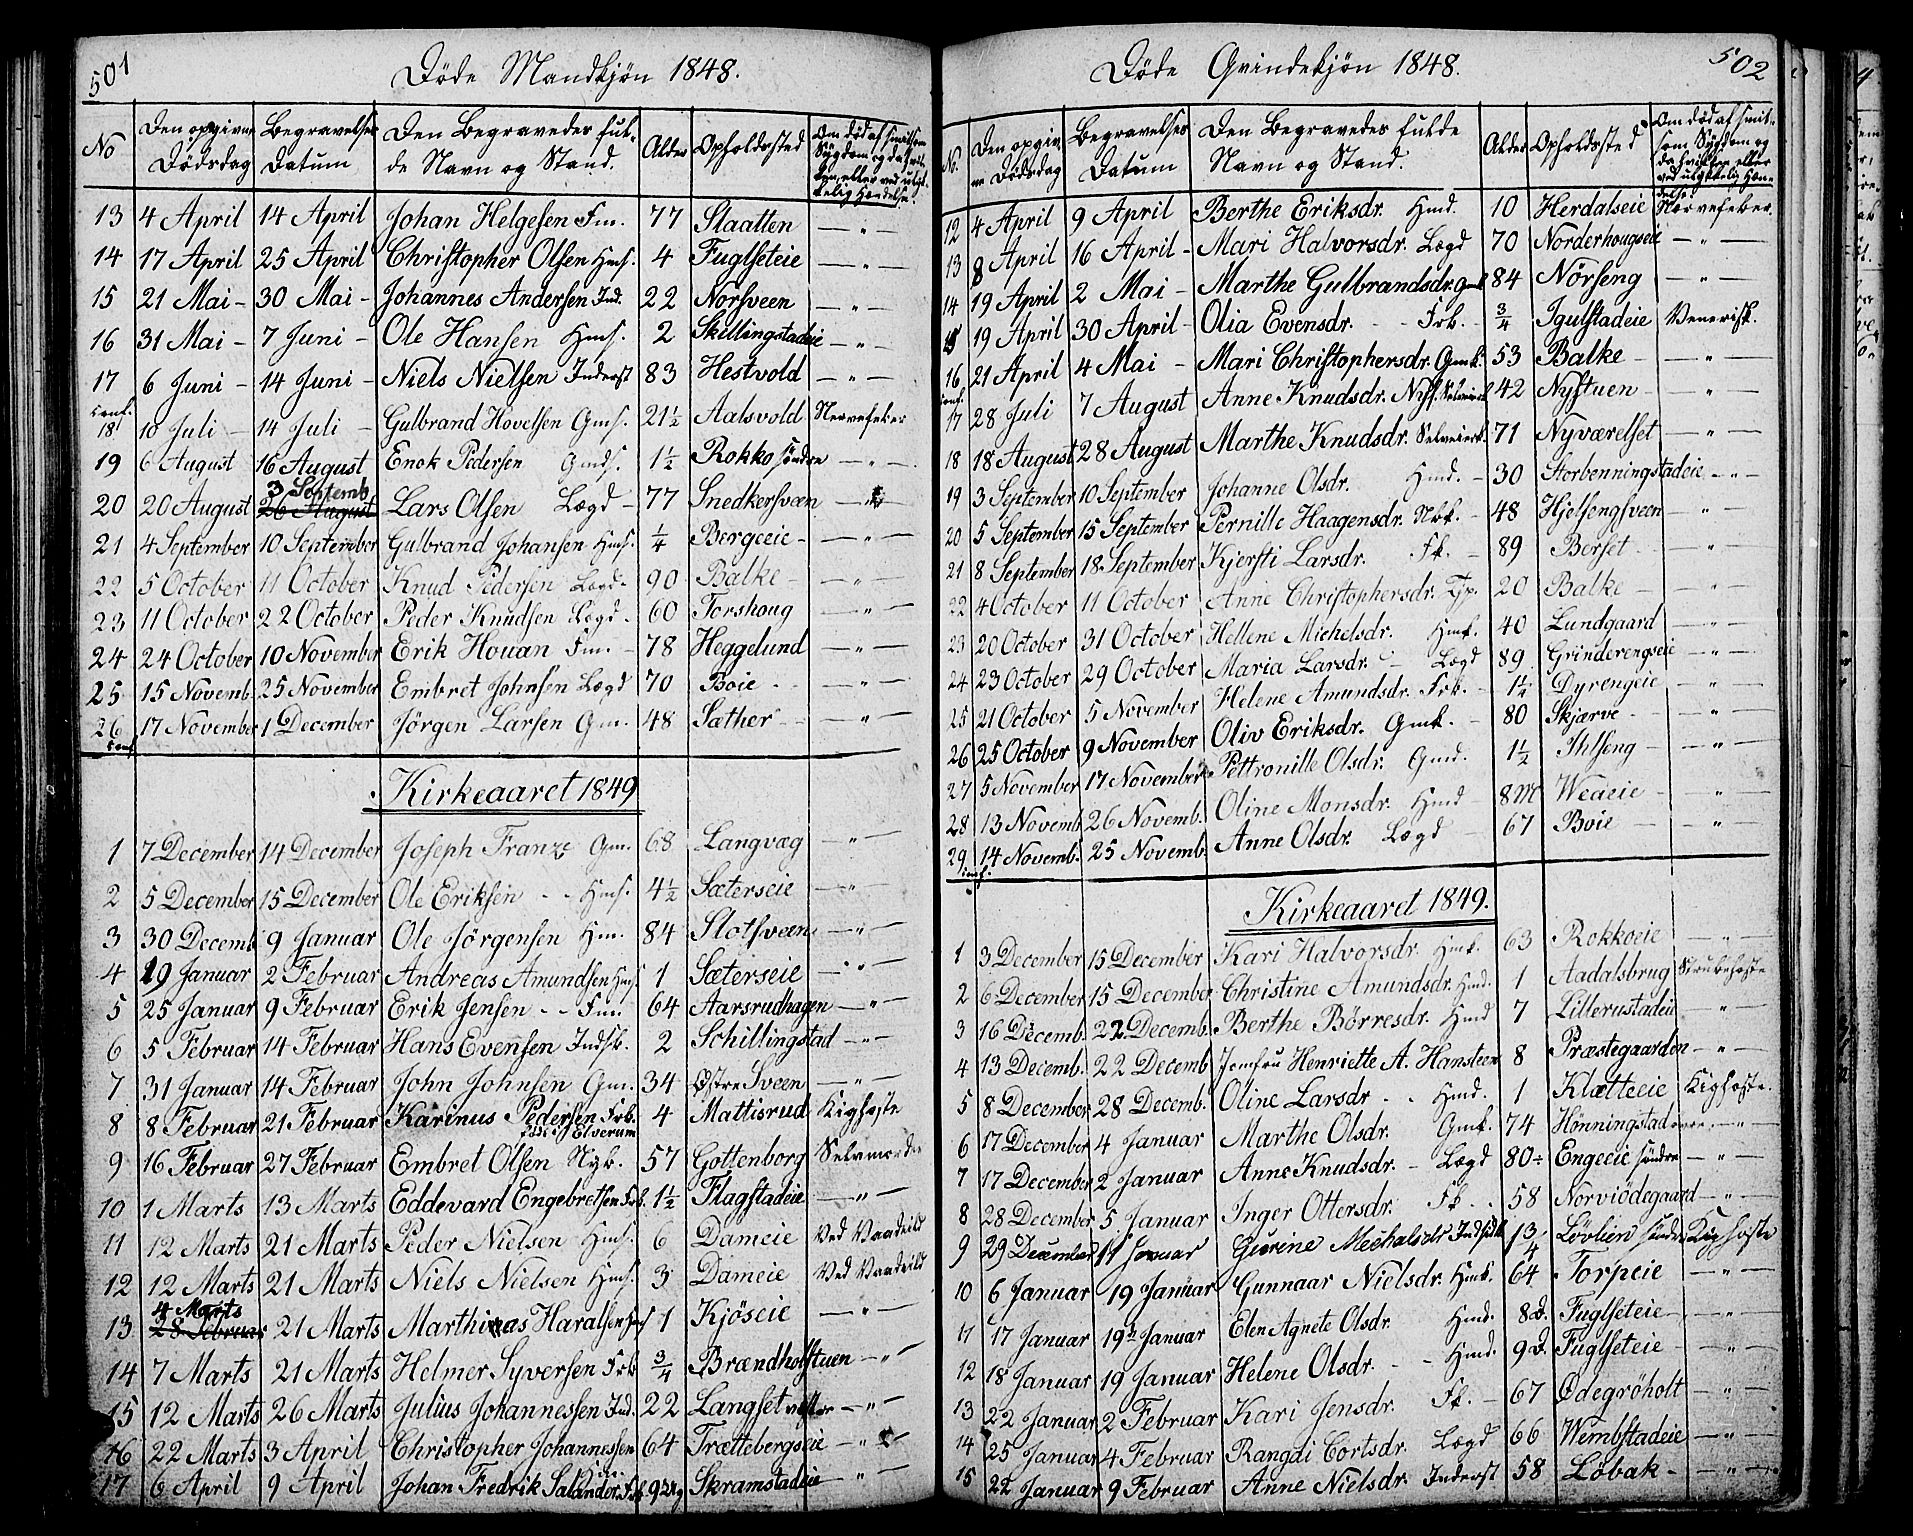 501
Döde Mandkjön 1848.
No Den opgivne Dödsdag Begravelses Datum Den Begravedes fulde Navn og Stand. Alder Opholdssted Om död af smitsom Sygdom og da hvilken, eller ved ulykkelig Hændelse.
13 4 April 14 April Johan Helgesen Fm. 77 Slaatten — " —
14 17 April 25 April Christopher Olsen Hms. 4 Fuglseteie — " —
15 21 Mai - 30 Mai - Johannes Andersen Ind. 22 Norsveen — " —
16 31 Mai - 7 Juni - Ole Hansen Hms. 2 Skillingstadeie — " —
17 6 Juni - 14 Juni - Niels Nielsen Inderst 83 Hestvold — " —
conf.
18 10 Juli - 14 Juli - Gulbrand Hovelsen Gms. 21½ Aalsvold Nervefeber
19 6 August 16 August Enok Pedersen Gmds. 1½ Rokko söndre — " —
3 Septemb.
20 20 August 26 August Lars Olsen Lægd - 77 Snedkersveen — " —
21 4 September 10 September Gulbrand Johansen Hms. ¼ Bergeeie - — " —
22 5 October 11 October Knud Pedersen Lægd. 90 Balke - — " —
23 11 October 22 October Peder Knudsen Lægd. 60 Torshoug — " —
24 24 October 10 November Erik Houan Fm. - 78 Heggelund — " —
25 15 Novemb. 25 November Embret Johnsen Lægd 70 Boie - - — " —
26 17 November 1 December Jörgen Larsen Gm. 48 Sæther - - — " —
conf.
Kirkeaaret 1849
1 7 December 14 December Joseph Franze Gm. 68 Langvæg "
2 5 December 15 December Ole Eriksen - - Hms. 4½ Sæterseie — " —
3 30 Decemb. 9 Januar Ole Jörgensen Hm. 84 Slotsveen — " —
4 19 Januar 2 Februar Andreas Amundsen Hms. 1 Sæterseie — " —
5 25 Januar 9 Februar Erik Jensen - - Fm. 64 Aarsrudhagen — " —
6 5 Februar 14 Februar Hans Evensen Indsk. 2 Schillingstad — " —
7 31 Januar 14 Februar John Johnsen Gm. 34 Østre Sveen — " —
8 8 Februar 21 Februar Karinus Pedersen Frk. 4 Mattisrud Kighoste
født i Elverum
9 16 Februar 27 Februar Embret Olsen Nyb. 57 Gottenborg Selvmorder
10 1 Marts 13 Marts Eddevard Engebretsen Frk. 1½ Flagstadeie — " —
11 12 Marts 21 Marts Peder Nielsen Hms. 6 Dameie Ved Vaadeild
12 12 Marts 21 Marts Niels Nielsen Hms. 3 Dameie Ved Vaadeild
4 Marts
13 28 Februar 21 Marts Marthinas Haralsen Hms 1 Kjöseie — " —
14 7 Marts 21 Marts Helmer Syversen Frk. ¾ Brændholstuen — " —
15 12 Marts 26 Marts Julius Johannessen Ind. 22 Langset vester — " —
16 22 Marts 3 April Christopher Johannessen 64 Trættebergseie — " —
17 6 April 9 April Johan Fredrik Salander Frk 9 Skramstadeie "
502
Döde Qvindekjön 1848.
No. Den opgivne Dödsdag Begravelses Datum Den Begravedes fulde Navn og Stand. Alder Opholdssted Om död af smitsom Sygdom og da hvilken eller ved ulykkelig Hændelse.
12 4 April 9 April Berthe Eriksdr. Hmd. 10 Herdalseie Nervefeber.
13 8 April 16 April - Mari Halvorsdr. Lægd 70 Norderhougseie — " —
14 19 April 2 Mai - Marthe Gulbrandsdr. Gmk 84 Nörseng — " —
15 19 April 30 April - Olia Evensdr. - - Frk. - ¾ Igulstadeie Venerisk.
16 21 April 4 Mai - Mari Christophersdr. Gmk. 53 Balke - — " —
conf.
17 28 Juli 7 August Anne Knudsdr. Selveierk 42 Nystuen - — " —
18 18 August 28 August Marthe Knudsdr. Selveierk. 71 Nyværelset — " —
19 3 September 10 September Johanne Olsdr. Hmd. - 30 Storbenningstadeie - " —
20 5 September 15 September Pernille Haagensdr. Nbk. - 48 Hjelsengsveen — " —
21 8 September 18 September Kjersti Larsdr. Fk. - 89 Berset - - — " —
22 4 October 11 October Anne Christophersdr. Tjp. 20 Balke - — " —
23 20 October 31 October Hellene Michelsdr. Hmk. 40 Lundgaard — " —
24 23 October 29 October Maria Larsdr. - Lægd 89 Grinderengseie — " —
25 21 October 5 November Helene Amundsdr. Frk. - 1¼ Dyrengeie — " —
26 25 October 9 November Oliv Eriksdr. Gmk. - 80 Skjærve - — " —
27 5 November 17 November Pettronille Olsdr. Gmd. 1½ Ihlseng - — " —
28 13 Novemb. 26 Novemb. Oline Monsdr. Hmd - 8M Weaeie - "
29 14 Novemb. 25 Novemb. Anne Olsdr. Lægd - 67 Boie - "
conf.
Kirkeaaret 1849.
1 3 December 15 December Kari Halvorsdr. Hmk. 63 Rokkoeie — " —
2 6 December 15 December Christine Amundsdr. Hmd. 1 Aadalsbrug Strubehoste
3 16 Decemb. 22 Decemb. Berthe Börresdr. Hmd 7 Lillerustadeie "
4 13 Decemb. 22 Decemb. Jomfru Henriette A. Hansteen 8 Præstegaarden — " —
5 8 December 28 Decemb. Oline Larsdr - - Hmd. 1 Klætteeie Kighoste.
6 17 December 4 Januar Marthe Olsdr. Gmk. 74 Hönningstad — " —
7 17 December 2 Januar Anne Knudsdr. - Lægd 80 Engeeie söndre — " —
8 28 December 5 Januar Inger Ottersdr. Fk. . . 58 Norviödegaard — " —
9 29 December 11 Januar Gurine Mechalsdr Indsidd. ¾ Lövlien söndre Kighoste
10 6 Januar 19 Januar Gunnaar Nielsdr. Hmk. 64 Torpeie — " —
11 17 Januar 19 Januar Elen Agnete Olsdr. Hmd. 8D. Fuglseteie - — " —
12 18 Januar 19 Januar Helene Olsdr. - - Hmd. 9D. Fuglseteie - — " —
13 22 Januar 2 Februar Kari Jensdr. Fk. - 67 Ödegröholt — " —
14 25 Januar 4 Februar Rangdi Cortsdr. Lægd 66 Wembstadeie — " —
15 22 Januar 9 Februar Anne Nielsdr. Inderst 58 Löbak - — " —